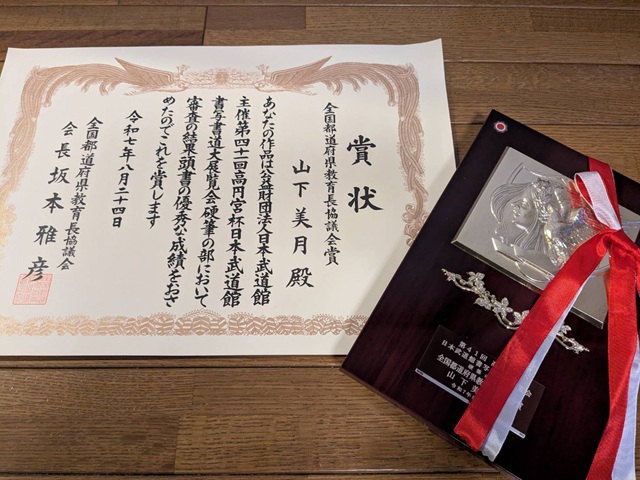 賞状
全国都道府県教育長協議会賞
山下美月殿
あなたの作品は公益財団法人日本武道館
主催第四十一回高円宮杯日本武道館
書写書道大展覧会硬筆の部において
審査の結果頭書の優秀な成績をおさ
めたのでこれを賞します
令和七年八月二十四日
全国都道府県教育長協議会
会長坂本雅彦
第41回
日本武道館書写
全国都道府県教
山下
令和7年